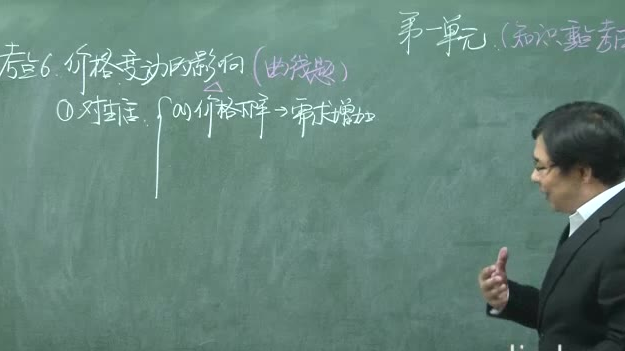 第一单元 (知识重点考
考点6. 价格变动的影响 (曲线题)
① 对生活. (1) 价格下降→需求增加